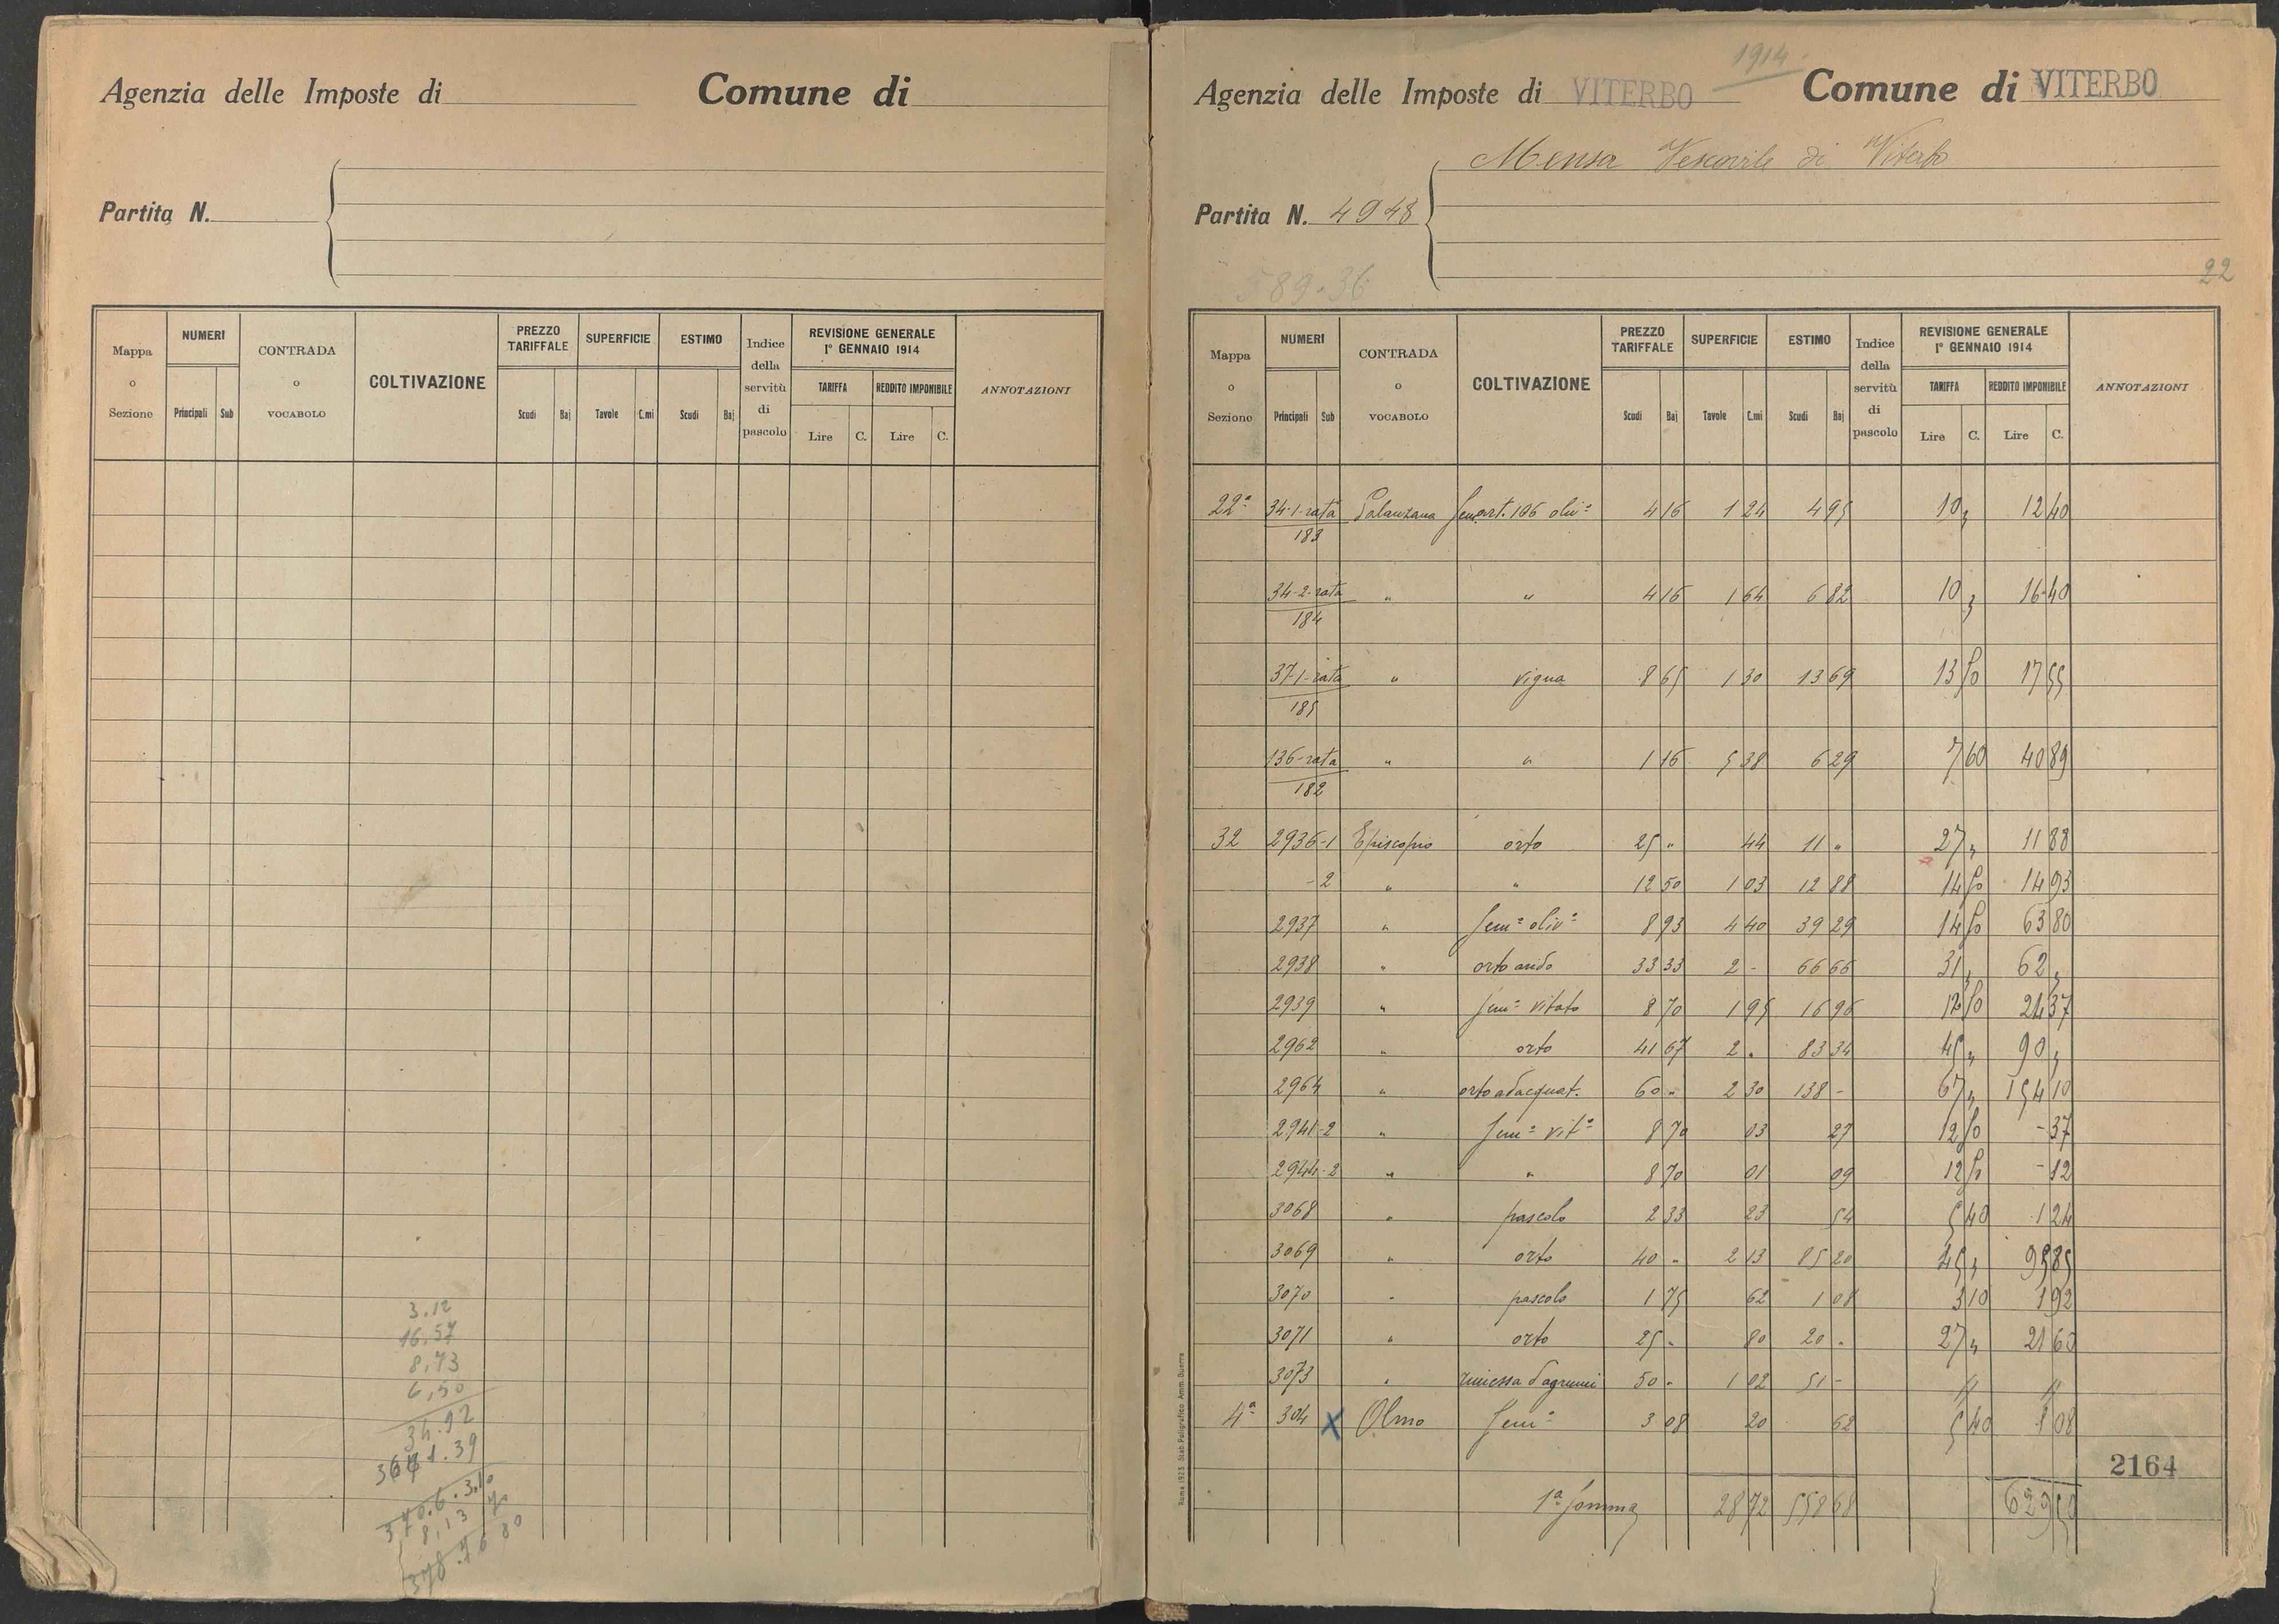 Agenzia delle Imposte di
Comune di
Partita N.
Mappa o Sezione
NUMERI
Principali
Sub
CONTRADA o VOCABOLO
COLTIVAZIONE
PREZZO TARIFFALE
Scudi
Baj
SUPERFICIE
Tavole
C.mi
ESTIMO
Scudi
Baj
Indice della servitù di pascolo
REVISIONE GENERALE
1° GENNAIO 1914
TARIFFA
Lire
C.
REDDITO IMPONIBILE
Lire
C.
ANNOTAZIONI
3.12
16.57
8,73
6,50
34.92
1914
Agenzia delle Imposte di VITERBO
Comune di VITERBO
Mensa Vescovile di Viterbo
Partita N. 4948
89.36
22
Mappa o Sezione
NUMERI
Principali
Sub
CONTRADA o VOCABOLO
COLTIVAZIONE
PREZZO TARIFFALE
Scudi
Baj
SUPERFICIE
Tavole
C.mi
ESTIMO
Scudi
Baj
Indice della servitù di pascolo
REVISIONE GENERALE
1° GENNAIO 1914
TARIFFA
Lire
C.
REDDITO IMPONIBILE
Lire
C.
ANNOTAZIONI
22ª 34-1-rata Palanzana Sem.art. 106 oliv° 4 16 1 24 4 95 10 " 12 40
183
34-2-rata " " 4 16 1 64 6 82 10 " 16 40
184
37-1-rata " vigna 8 65 1 30 13 69 13 50 17 55
185
136-rata " " 1 16 5 38 6 29 7 60 40 89
182
32 2936-1 Episcopio orto 25 " 44 11 " 27 " 11 88
-2 " " 12 50 1 03 12 88 14 50 14 93
2937 " Sem° oliv° 8 93 4 40 39 29 14 50 63 80
2938 " orto arido 33 33 2 - 66 66 31 " 62 "
2939 " Sem° vitato 8 70 1 95 16 96 12 50 24 37
2962 " orto 41 67 2 " 83 34 45 " 90 "
2964 " orto adacquat. 60 " 2 30 138 - 67 " 154 10
2941-2 " Sem° vit° 8 70 03 27 12 50 - 37
2944-2 " " 8 70 01 09 12 50 - 12
3068 " pascolo 2 33 23 54 5 40 1 24
3069 " orto 40 " 2 13 85 20 45 " 95 85
3070 " pascolo 1 75 62 1 08 3 10 1 92
3071 " orto 25 " 80 20 " 27 " 21 60
3073 " rimessa d'agrumi 50 " 1 02 51 - " "
4ª 304 X Olmo Sem° 3 08 20 62 5 40 1 08
2164
1ª Somma 28 72 558 68
Roma 1923 Stab. Poligrafico Amm. Guerra